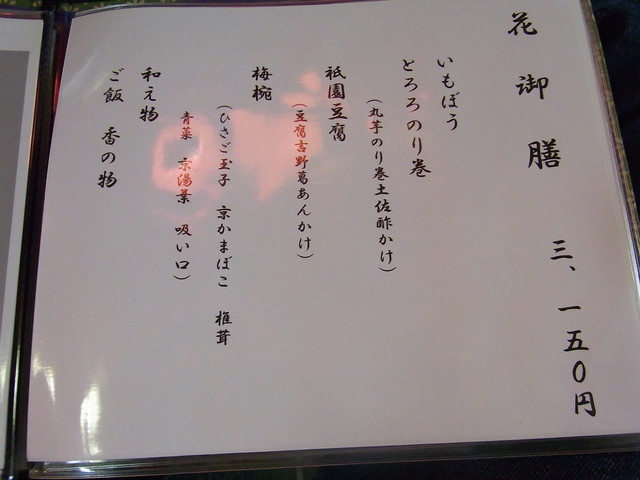 花御膳 三、一五〇円
いもぼう
とろろのり巻
(丸芋のり巻土佐酢かけ)
祇園豆腐
(豆腐吉野葛あんかけ)
梅椀
(ひさご玉子 京かまぼこ 椎茸
青菜 京湯葉 吸い口)
和え物
ご飯 香の物